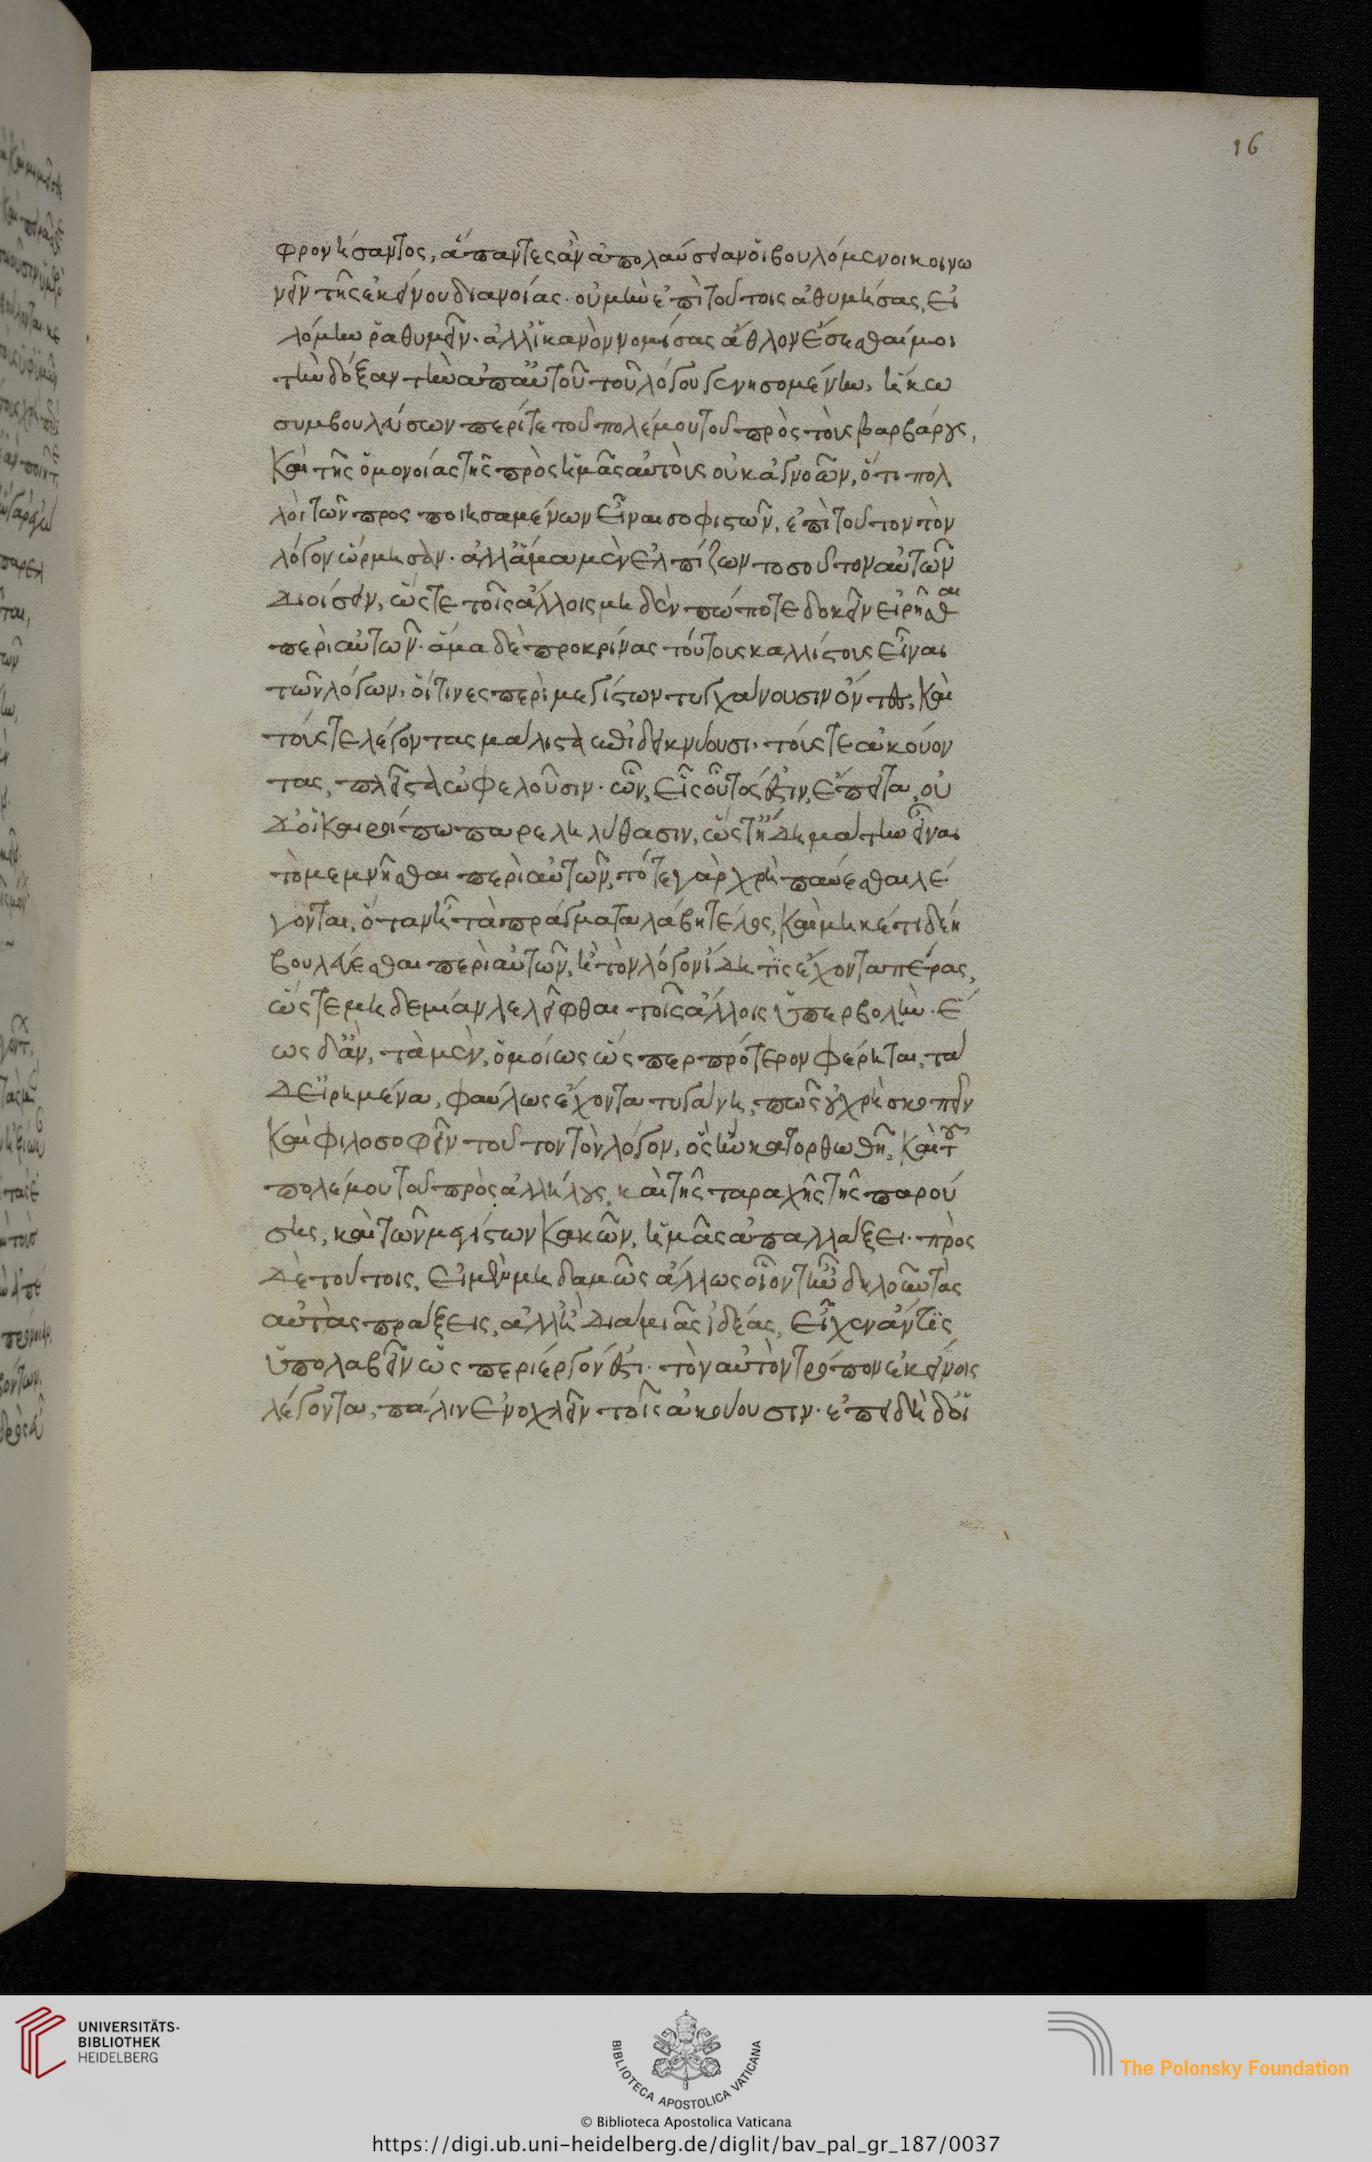 16
φρονήσαντος, ἅπαντες ἂν ἀπολαύσειαν οἱ βουλόμενοι κοινω
νεῖν τῆς ἐκείνου διανοίας. οὐ μὴν ἐπὶ τούτοις ἀθυμήσας, εἱ
λόμην ῥαθυμεῖν. ἀλλ' ἱκανὸν νομίσας ἆθλον ἔσεσθαί μοι
τὴν δόξαν τὴν ἀπ' αὐτοῦ τοῦ λόγου γενησομένην, ἥκω
συμβουλεύσων περί τε τοῦ πολέμου τοῦ πρὸς τοὺς βαρβάρους,
καὶ τῆς ὁμονοίας τῆς πρὸς ἡμᾶς αὐτοὺς οὐκ ἀγνοῶν, ὅτι πολ
λοὶ τῶν προσποιησαμένων εἶναι σοφιστῶν, ἐπὶ τοῦτον τὸν
λόγον ὥρμησαν. ἀλλ' ἅμα μὲν ἐλπίζων τοσοῦτον αὐτῶν
διοίσειν, ὥστε τοῖς ἄλλοις μηδὲν πώποτε δοκεῖν εἰρῆσθαι
περὶ αὐτῶν. ἅμα δὲ προκρίνας τούτους καλλίστους εἶναι
τῶν λόγων, οἵτινες περὶ μεγίστων τυγχάνουσιν ὄντες, καὶ
τούς τε λέγοντας μάλιστα ἐπιδεικνύουσι, τούς τε ἀκούον
τας, πλεῖστα ὠφελοῦσιν. ὧν, εἷς οὗτός ἐστιν, ἔπειτα, οὐ
δ' οἱ καιροί πω παρεληλύθασιν, ὥστ' ἤδη μάτην εἶναι
τὸ μεμνῆσθαι περὶ αὐτῶν, τότε γὰρ χρὴ παύεσθαι λέ
γοντα, ὅταν ἢ τὰ πράγματα λάβῃ τέλος, καὶ μηκέτι δέῃ
βουλεύεσθαι περὶ αὐτῶν, ἢ τὸν λόγον ἴδῃ τις ἔχοντα πέρας,
ὥστε μηδεμίαν λελεῖφθαι τοῖς ἄλλοις ὑπερβολήν. ἕ
ως δ' ἂν, τὰ μὲν, ὁμοίως ὥσπερ πρότερον φέρηται, τὰ
δ' εἰρημένα, φαύλως ἔχοντα τυγχάνῃ, πῶς οὐ χρὴ σκοπεῖν
καὶ φιλοσοφεῖν τοῦτον τὸν λόγον, ὃς ἢν κατορθωθῇ, καὶ τοῦ
πολέμου τοῦ πρὸς ἀλλήλους, καὶ τῆς ταραχῆς τῆς παρού
σης, καὶ τῶν μεγίστων κακῶν, ἡμᾶς ἀπαλλάξει. πρὸς
δὲ τούτοις, εἰ μὲν μηδαμῶς ἄλλως οἷόν τ' ἦν δηλοῦν τὰς
αὐτὰς πράξεις, ἀλλ' ἢ διὰ μιᾶς ἰδέας, εἶχεν ἄν τις
ὑπολαβεῖν ὡς περίεργόν ἐστι. τὸν αὐτὸν τρόπον ἐκείνοις
λέγοντα, πάλιν ἐνοχλεῖν τοῖς ἀκούουσιν. ἐπειδὴ δ' οἱ
UNIVERSITÄTS-
BIBLIOTHEK
HEIDELBERG
BIBLIOTECA APOSTOLICA VATICANA
The Polonsky Foundation
© Biblioteca Apostolica Vaticana
https://digi.ub.uni-heidelberg.de/diglit/bav_pal_gr_187/0037